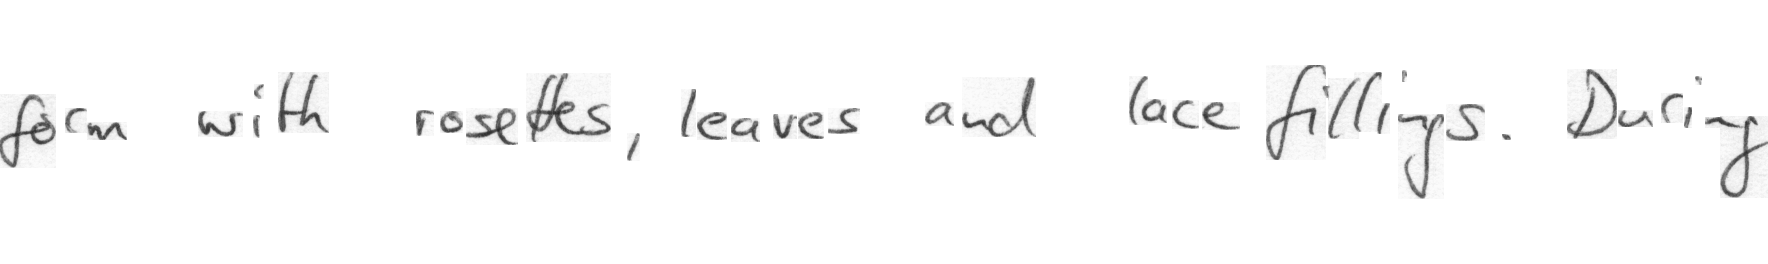 form with rosettes, leaves and lace fillings. During